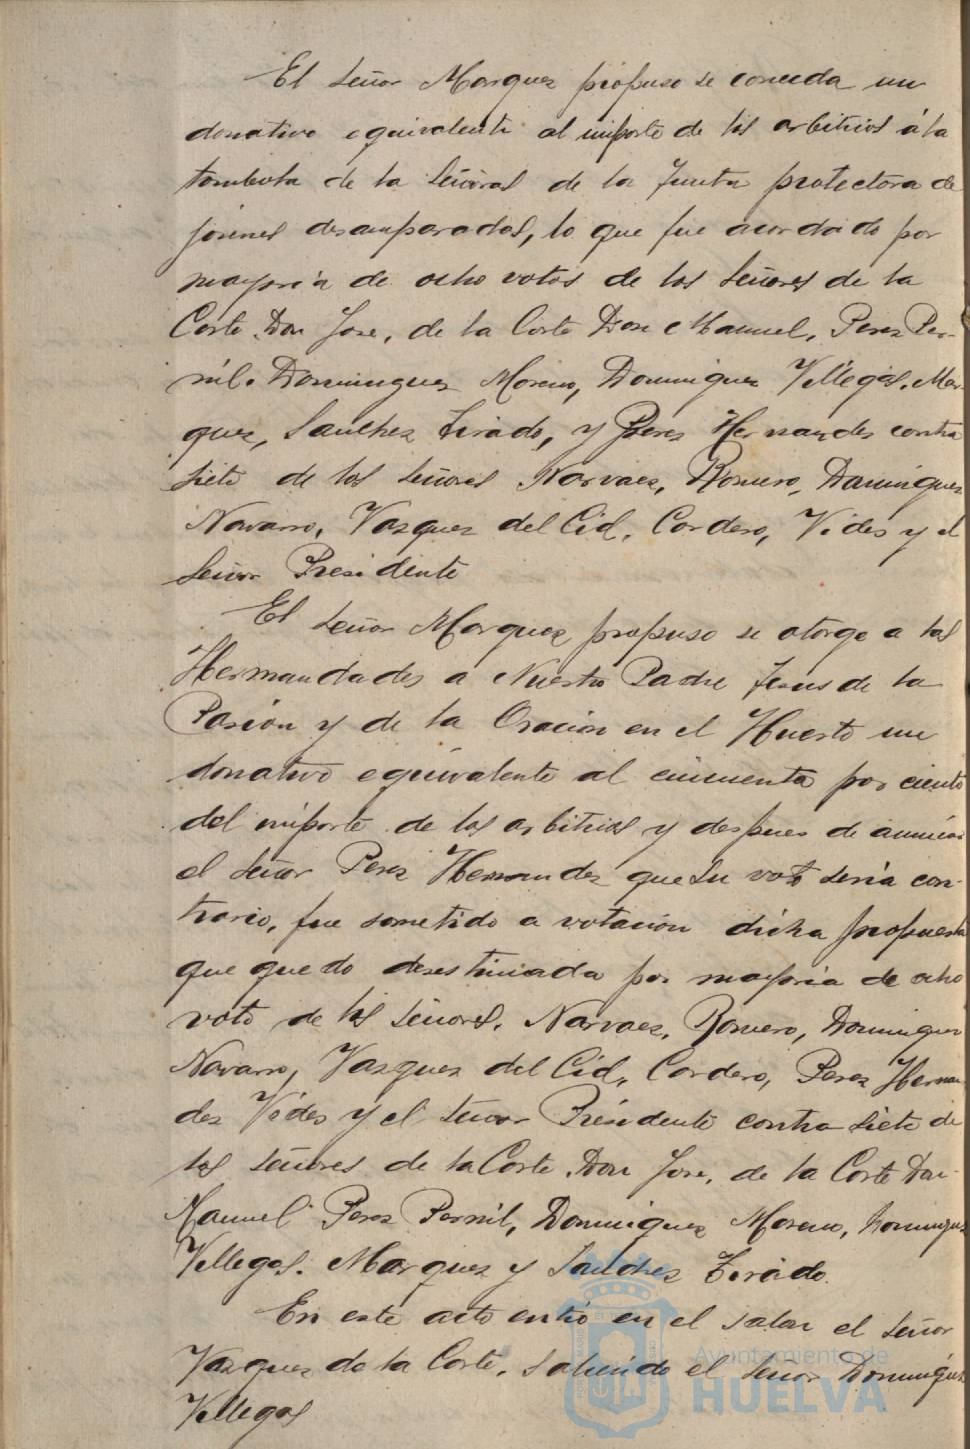 El señor Marquez propuso se conceda un
donativo equivalente al importe de los arbitrios á la
tombola de la señoras de la Junta protectora de
jóvenes desamparadas, lo que fue acordado por
mayoria de ocho votos de los señores de la
Corte Don Jose, de la Corte Don Manuel, Perez Per-
nil. Dominguez Moreno, Dominguez Villegas. Mar-
quez, Sanchez Tirado, y Perez Hernandez contra
siete de los señores Narvaez, Romero, Dominguez
Navarro, Vazquez del Cid, Cordero, Vides y el
señor Presidente
El señor Marquez propuso se otorge a las
Hermandades a Nuestro Padre Jesus de la
Pasión y de la Oracion en el Huerto un
donativo equivalente al cincuenta por ciento
del importe de los arbitrios y despues de anunciar
el señor Perez Hernandez que su voto seria con-
trario, fue sometido a votación dicha propuesta
que quedo desestimada por mayoria de ocho
voto de los señores. Narvaez, Romero, Dominguez
Navarro, Vazquez del Cid, Cordero, Perez Hernan-
dez Vides y el señor Presidente contra siete de
los señores de la Corte Don Jose, de la Corte Don
Manuel Perez Pernil, Dominguez Moreno, Dominguez
Villegas. Marquez y Sanchez Tirado.
En este acto entró en el salon el señor
Vazquez de la Corte, saliendo el señor Dominguez
Villegas
Ayuntamiento de
HUELVA